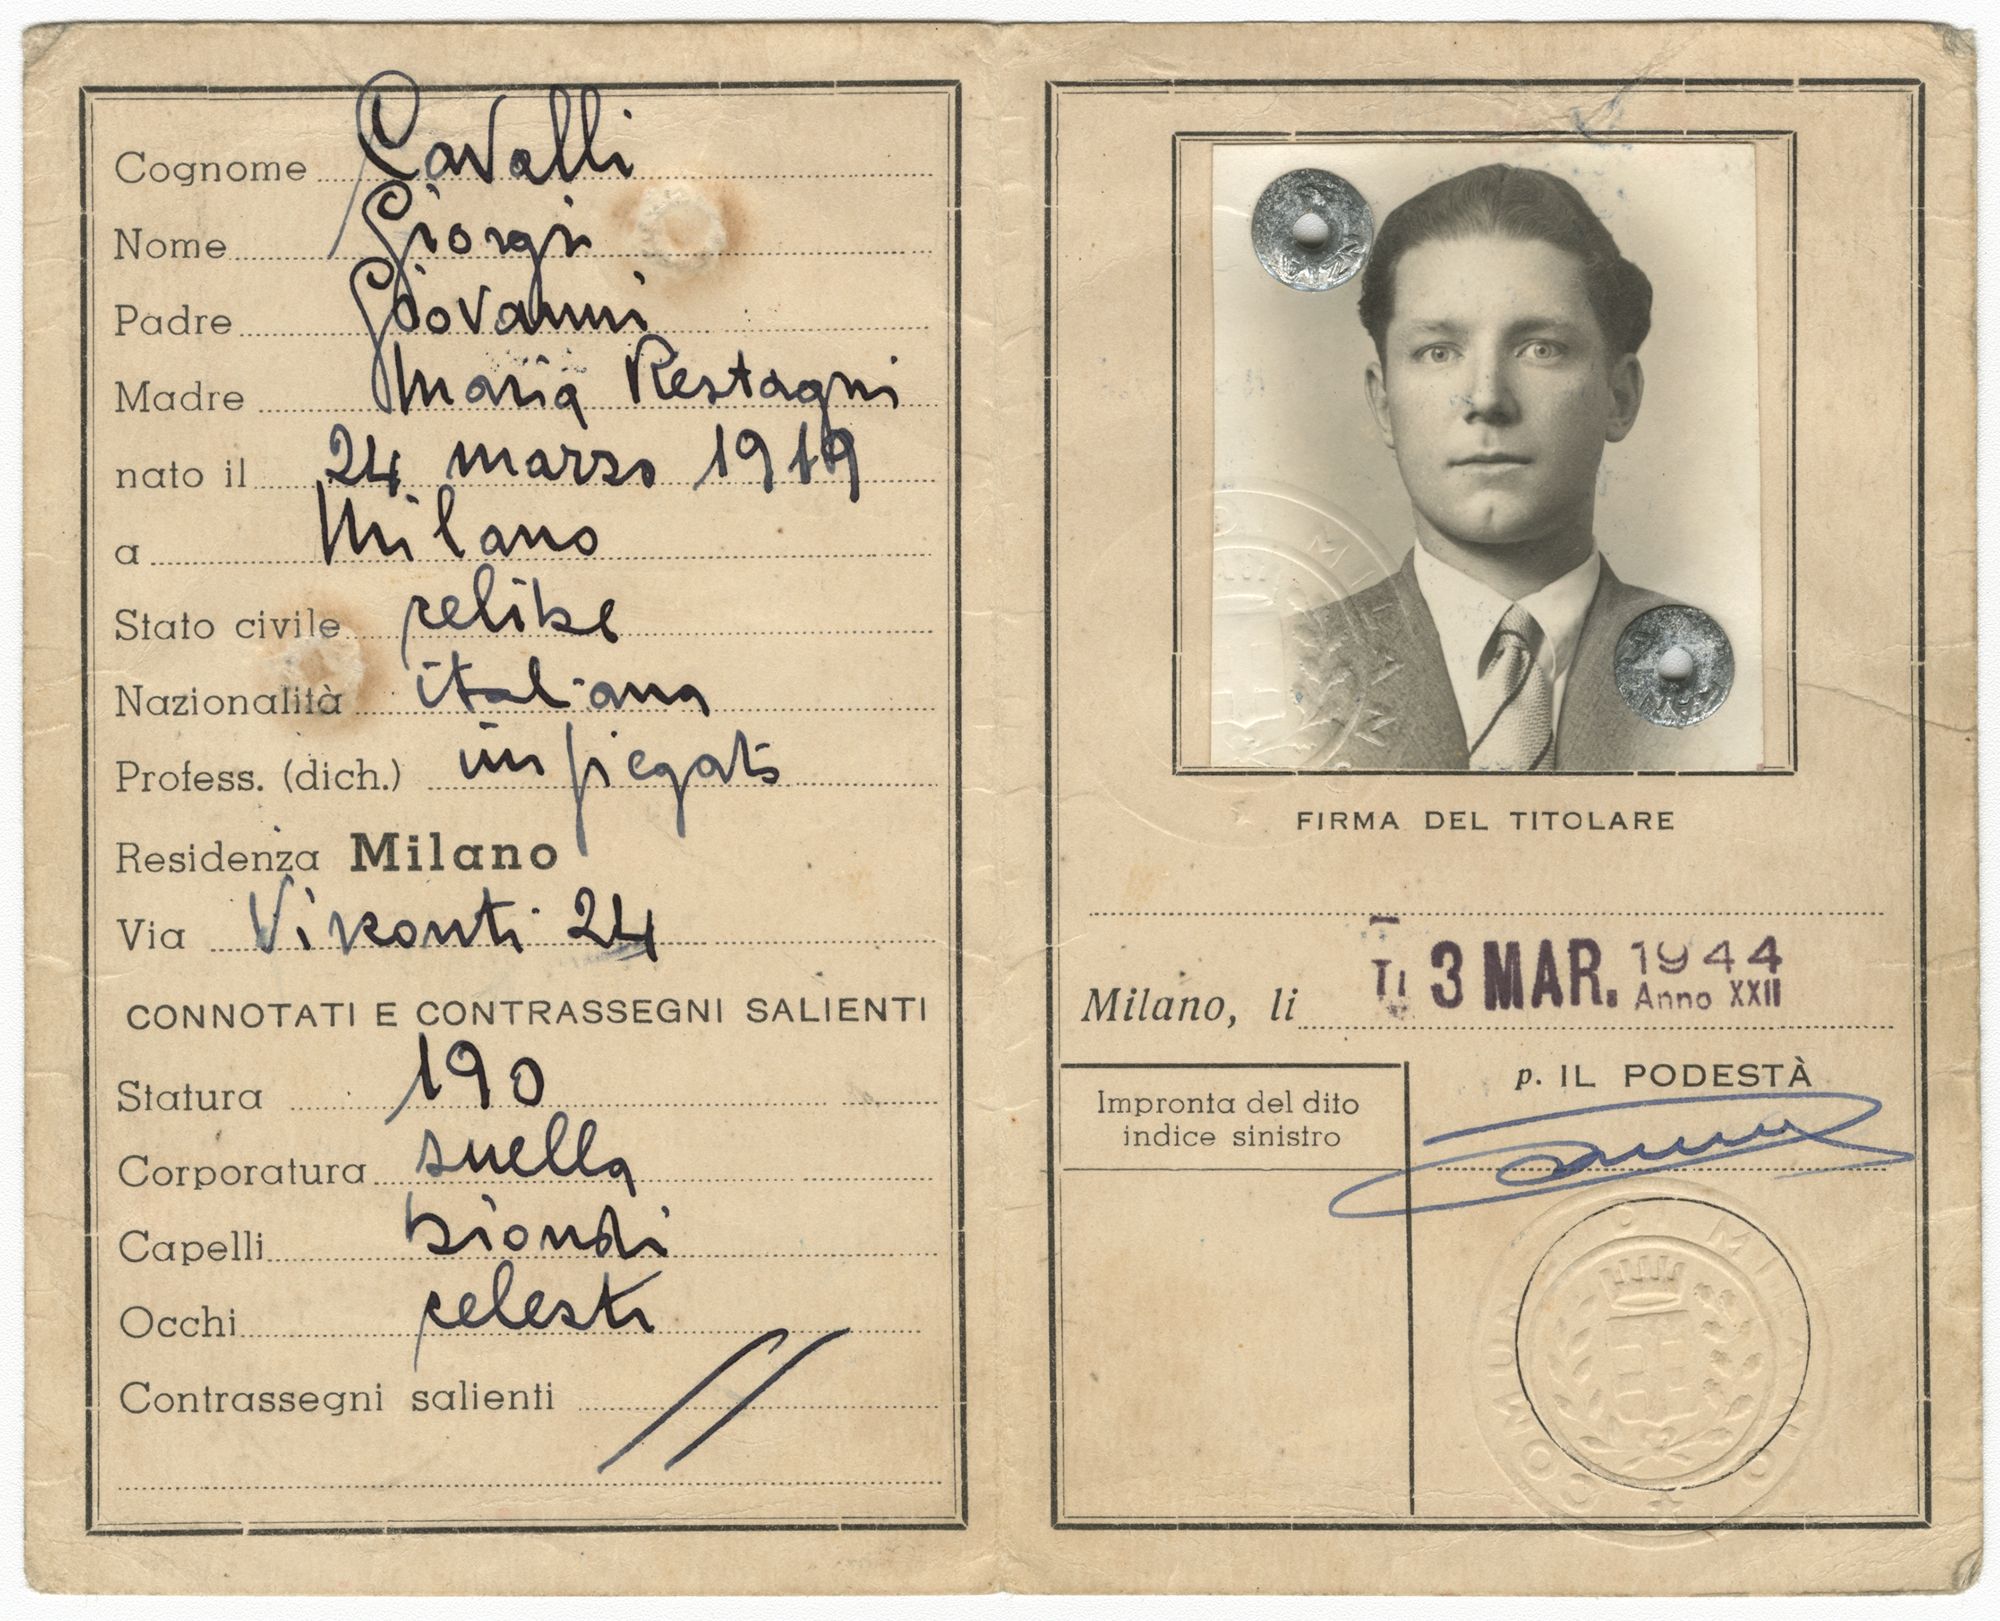 Cognome Cavalli
Nome Giorgi
Padre Giovanni
Madre Maria Restagni
nato il 24 marzo 1919
a Milano
Stato civile celibe
Nazionalità italiana
Profess. (dich.) impiegato
Residenza Milano
Via Visconti 24
CONNOTATI E CONTRASSEGNI SALIENTI
Statura 190
Corporatura snella
Capelli biondi
Occhi celesti
Contrassegni salienti
FIRMA DEL TITOLARE
Milano, li 3 MAR. 1944
Anno XXII
p. IL PODESTÀ
Impronta del dito
indice sinistro
COMUNE DI MILANO